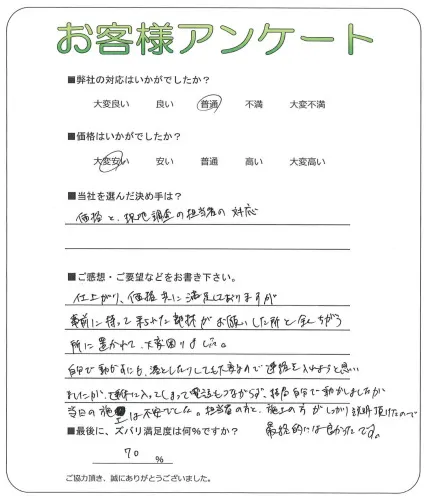 お客様アンケート
■弊社の対応はいかがでしたか?
大変良い 良い 普通 不満 大変不満
■価格はいかがでしたか?
大変安い 安い 普通 高い 大変高い
■当社を選んだ決め手は?
価格と、現地調査の担当者の対応
■ご感想・ご要望などをお書き下さい。
仕上がり、価格共に満足しておりますが
事前に持って来られた部材がお願いした所と全くちがう
所に置かれて、大変困りました。
自分で動かすにも、落としたりしても大変なので連絡を入れようと思い
ましたが、連休に入ってしまって電話もつながらず、結局自分で動かしましたが
当日の施工は不安でした。担当者の方と、施工の方がしっかり説明頂けたので
最終的には良かったです。
■最後に、ズバリ満足度は何%ですか?
70 %
ご協力頂き、誠にありがとうございました。